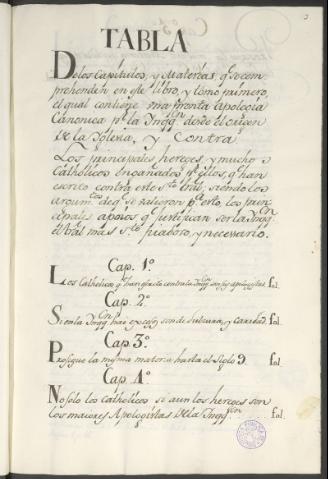 TABLA
De los Capitulos, y Materias, q.e se com
prehenden en este libro, y tomo primero,
el qual contiene una pronta apologia
Canonica p.r la Ynqq.on desde el origen
de la Yglesia, y contra
Los principales hereges, y muchos
Catholicos engañados p.r ellos, q.e han
escrito contra este S.to tral, siendo los
argum.tos de q.e se valieron p.a esto, los prin
cipales apoios, q.e justifican ser la Ynqq.on
el tral mas S.to piadoso, y necesario.
Cap. 1º
Los Catholicos q.e han escrito contra la Ynqq.on son sus apologistas fol.
Cap. 2º
Si en la Ynqq.on hai exceso, son de dulzura, y caridad. fol.
Cap. 3º
Prosigue la misma materia hasta el siglo 9. fol.
Cap. 4º
No solo los catholicos si aun los hereges son
los maiores Apologistas de la Ynqq.on fol.